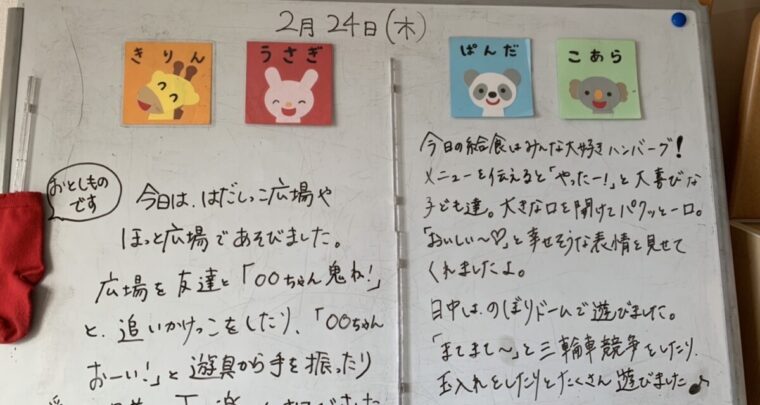 2月24日(木)
きりん
うさぎ
ぱんだ
こあら
おとしもの
です
今日は、はだしっこ広場や
ほっと広場であそびました。
広場を友達と「〇〇ちゃん鬼ね!」
と、追いかけっこをしたり、「〇〇ちゃん
おーい!」と遊具から手を振ったり
今日の給食はみんな大好きハンバーグ!
メニューを伝えると「やったー!」と大喜びな
子ども達。大きな口を開けてパクッと一口。
「おいしい〜♡」と幸せそうな表情を見せて
くれましたよ。
日中は、のぼりドームで遊びました。
「まてまて〜」と三輪車競争をしたり、
玉入れをしたりとたくさん遊びました♪